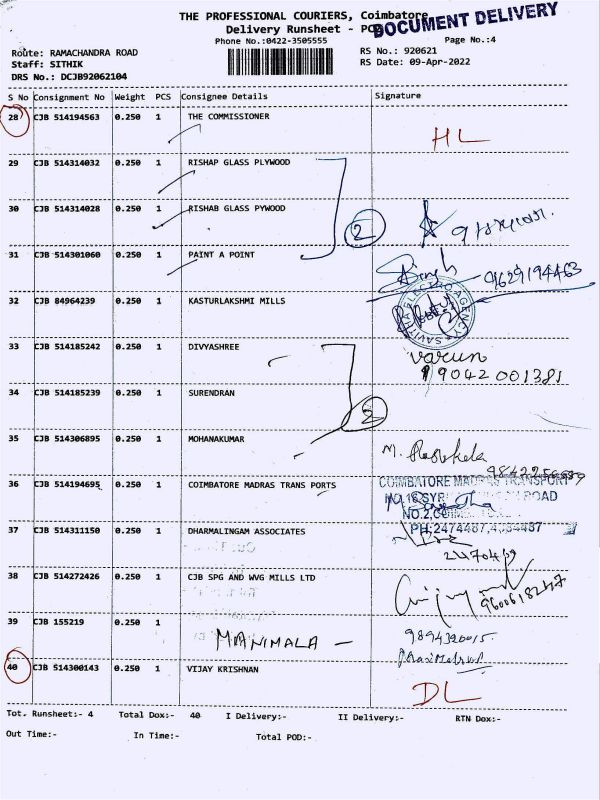 THE PROFESSIONAL COURIERS, Coimbatore
DOCUMENT DELIVERY
Delivery Runsheet - POD
Phone No.:0422-3505555
Page No.:4
Route: RAMACHANDRA ROAD
RS No.: 920621
Staff: SITHIK
RS Date: 09-Apr-2022
DRS No.: DCJB92062104
S No Consignment No Weight PCS Consignee Details Signature
28 CJB 514194563 0.250 1 THE COMMISSIONER
HL
29 CJB 514314032 0.250 1 RISHAP GLASS PLYWOOD
30 CJB 514314028 0.250 1 RISHAB GLASS PYWOOD
2
31 CJB 514301060 0.250 1 PAINT A POINT
Singh 9629194463
32 CJB 84964239 0.250 1 KASTURLAKSHMI MILLS
SAVITHA ELECTRO AGENCY
33 CJB 514185242 0.250 1 DIVYASHREE
varun
9042001381
34 CJB 514185239 0.250 1 SURENDRAN
2
35 CJB 514306895 0.250 1 MOHANAKUMAR
36 CJB 514194695 0.250 1 COIMBATORE MADRAS TRANS PORTS
COIMBATORE MADRAS TRANSPORT
ROAD
NO.2,
PH;2474487,
37 CJB 514311150 0.250 1 DHARMALINGAM ASSOCIATES
38 CJB 514272426 0.250 1 CJB SPG AND WVG MILLS LTD
9600618247
39 CJB 155219 0.250 1
MANIMALA -
9894320015.
40 CJB 514300143 0.250 1 VIJAY KRISHNAN
DL
Tot. Runsheet:- 4 Total Dox:- 40 I Delivery:- II Delivery:- RTN Dox:-
Out Time:- In Time:- Total POD:-